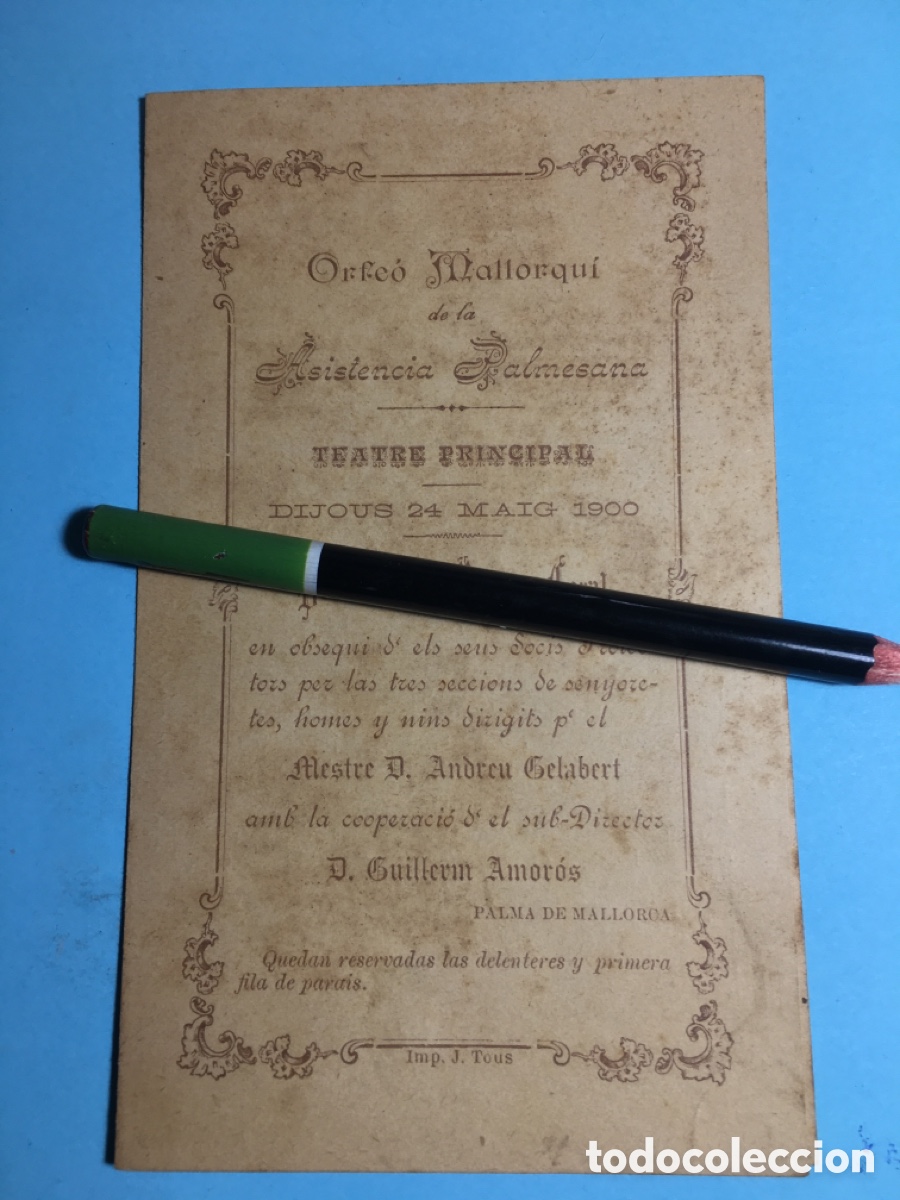 Orfeó Mallorquí
de la
Asistencia Palmesana
TEATRE PRINCIPAL
DIJOUS 24 MAIG 1900
en obsequi d' els seus socis
tors per las tres seccions de senyore-
tes, homes y nins dirigits p' el
Mestre D. Andreu Gelabert
amb la cooperació d' el sub-Director
D. Guillerm Amorós
PALMA DE MALLORCA
Quedan reservadas las delenteres y primera
fila de parais.
Imp. J. Tous
todocoleccion